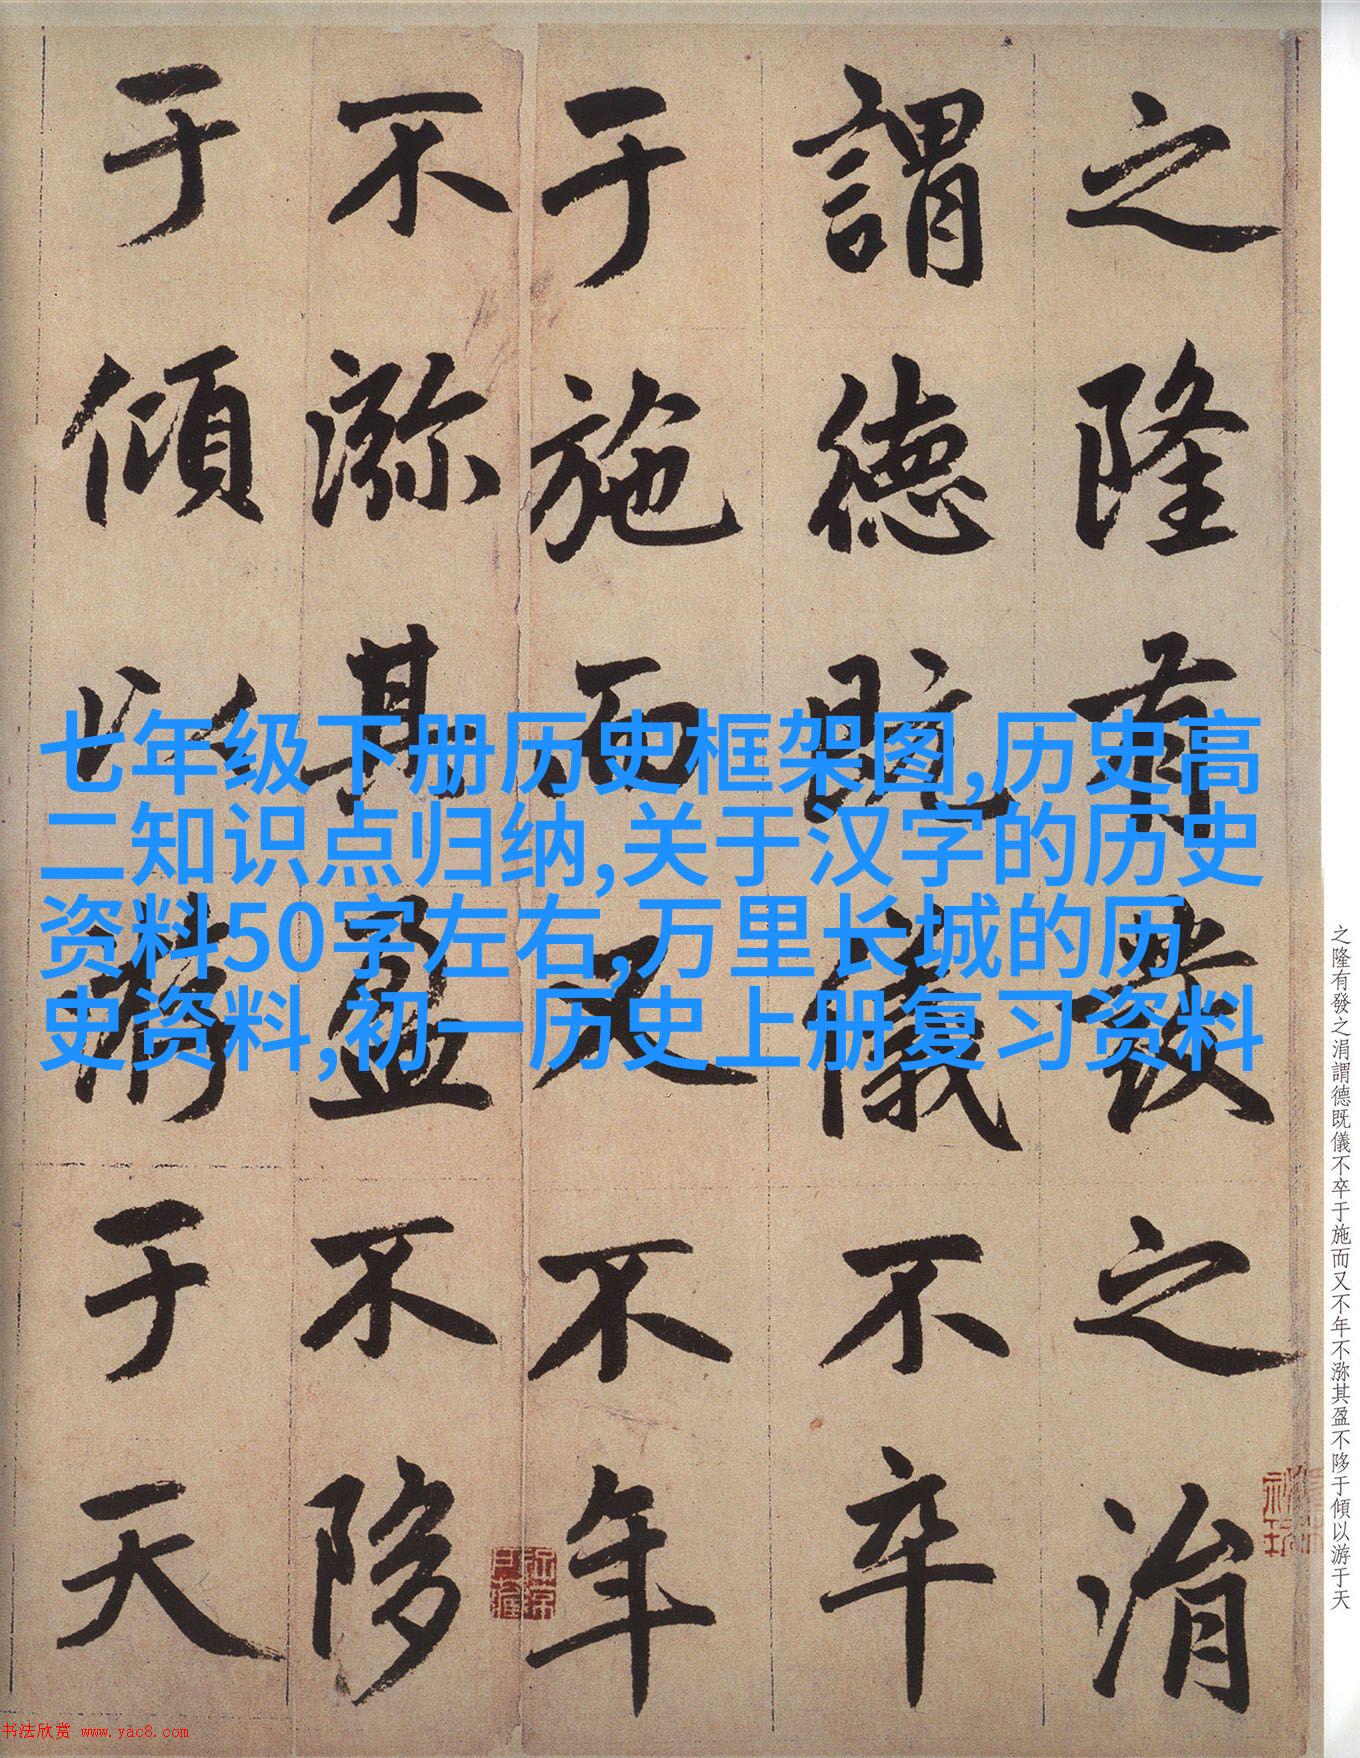 之隆有發之涓
謂德既儀不卒
于施而又不年
不㳽其盈不陊
于傾以游于天
七年级下册历史框架图,历史高
二知识点归纳,关于汉字的历史
资料50字左右,万里长城的历
史资料,初一历史上册复习资料
之隆有發之涓謂德既儀不卒于施而又不年不㳽其盈不陊于傾以游于天
书法欣赏 www.yac8.com